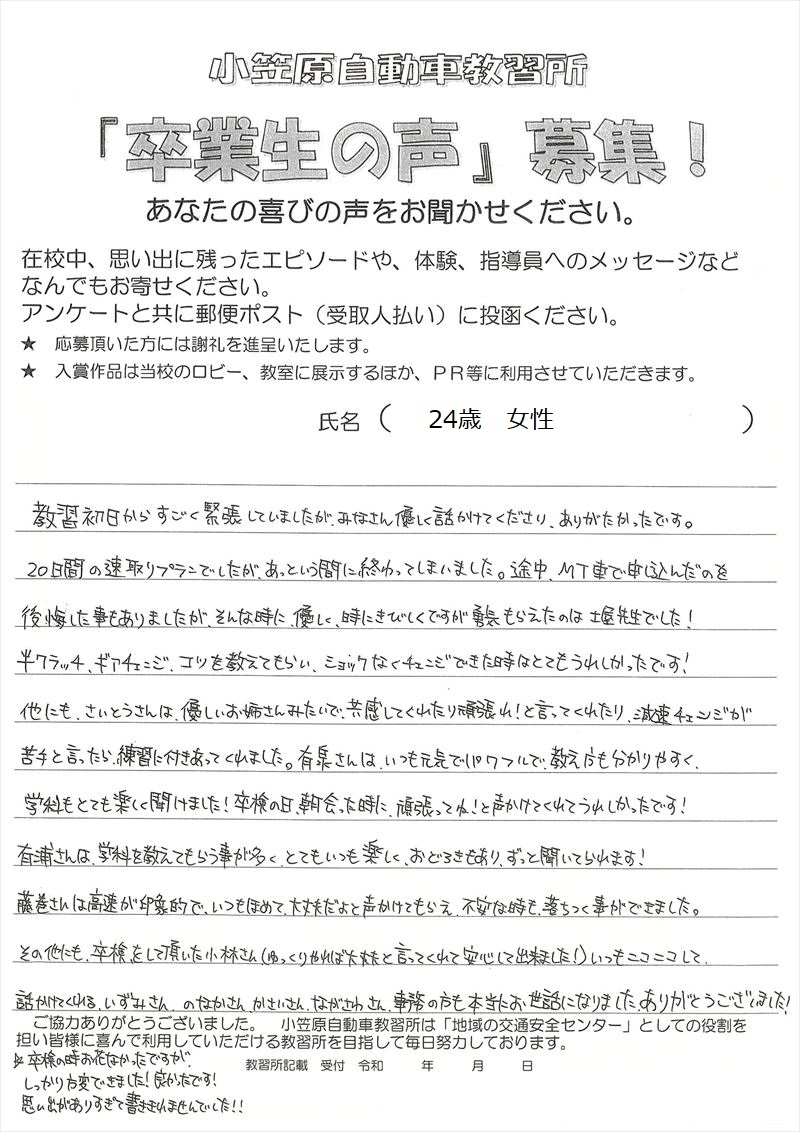 小笠原自動車教習所
『卒業生の声』募集！
あなたの喜びの声をお聞かせください。
在校中、思い出に残ったエピソードや、体験、指導員へのメッセージなど
なんでもお寄せください。
アンケートと共に郵便ポスト（受取人払い）に投函ください。
★ 応募頂いた方には謝礼を進呈いたします。
★ 入賞作品は当校のロビー、教室に展示するほか、ＰＲ等に利用させていただきます。
氏名（ 24歳 女性 ）
教習初日からすごく緊張していましたが、みなさん優しく話かけてくださり、ありがたかったです。
20日間の速取りプランでしたが、あっという間に終わってしまいました。途中、MT車で申し込んだのを
後悔した事もありましたが、そんな時に、優しく、時にきびしくですが勇気もらえたのは土屋先生でした！
半クラッチ、ギアチェンジ、コツを教えてもらい、ショックなくチェンジできた時はとてもうれしかったです！
他にも、さいとうさんは、優しいお姉さんみたいで、共感してくれたり頑張れ！と言ってくれたり、減速チェンジが
苦手と言ったら、練習に付きあってくれました。有泉さんは、いつも元気でパワフルで、教え方も分かりやすく、
学科もとても楽しく聞けました！卒検の日、朝会った時に、頑張ってね！と声かけてくれてうれしかったです！
有浦さんは、学科を教えてもらう事が多く、とてもいつも楽しく、おどろきもあり、ずっと聞いてられます！
藤巻さんは高速が印象的で、いつもほめて、大丈夫だよと声かけてもらえ、不安な時も、落ちつく事ができました。
その他にも、卒検をして頂いた小林さん（ゆっくりやれば大丈夫と言ってくれて安心して出来ました！）いつもニコニコして、
話かけてくれる、いずみさん、のなかさん、かさいさん、ながさわさん、事務の方も本当にお世話になりました。ありがとうございました！
ご協力ありがとうございました。 小笠原自動車教習所は「地域の交通安全センター」としての役割を
担い皆様に喜んで利用していただける教習所を目指して毎日努力しております。
教習所記載 受付 令和 年 月 日
※卒検の時お花なかったですが、
しっかり方変できました！良かったです！
思い出がありすぎて書ききれませんでした！！